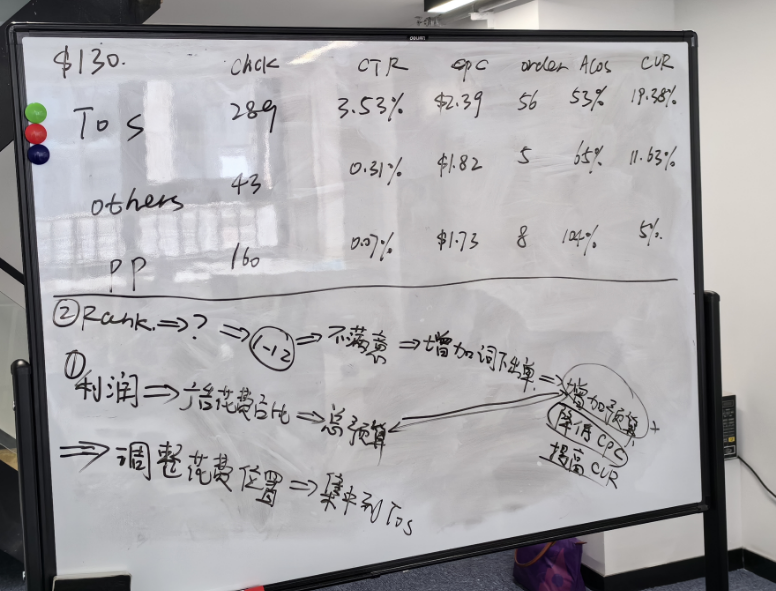 $130. click CTR cpc order ACos CVR
Tos 289 3.53% $2.39 56 53% 19.38%
others 43 0.31% $1.82 5 65% 11.63%
PP 160 0.07% $1.73 8 104% 5%
② Rank. ⇒ ? ⇒ 1-12 ⇒ 不满意 ⇒ 增加词下出单 ⇒ 增加预算
降低CPC +
提高CVR
① 利润 ⇒ 广告花费占比 ⇒ 总预算
⇒ 调整花费位置 ⇒ 集中到Tos